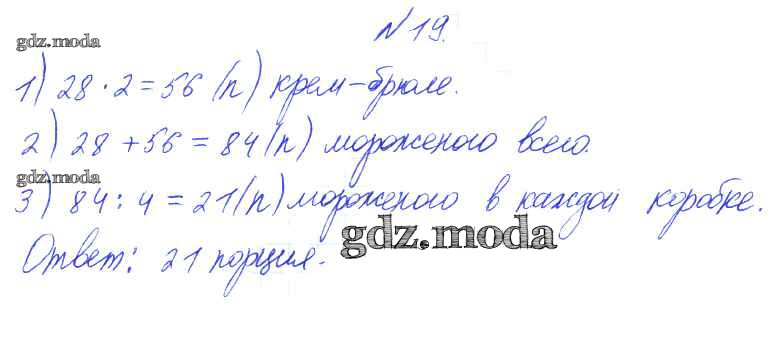 № 19.
gdz.moda
1) 28 · 2 = 56 (п) крем-брюле.
2) 28 + 56 = 84 (п) мороженого всего.
gdz.moda
3) 84 : 4 = 21 (п) мороженого в каждой коробке.
gdz.moda
Ответ: 21 порция.